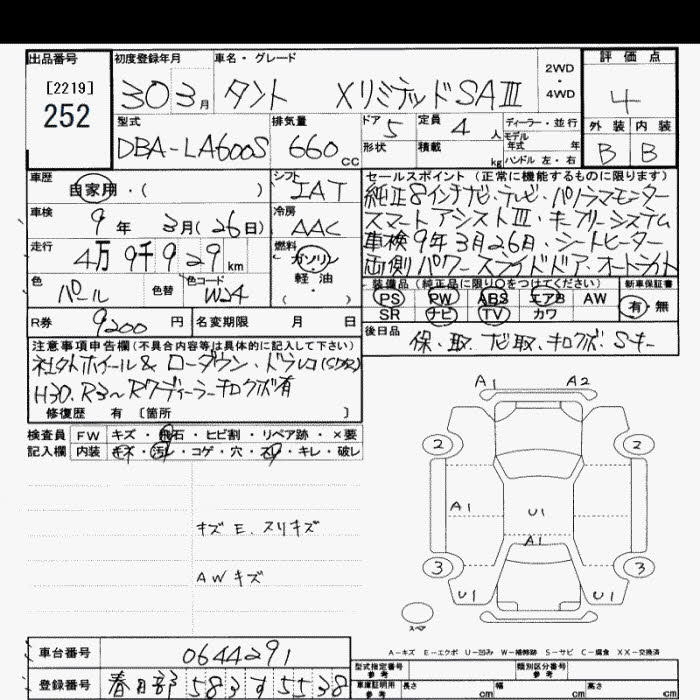 出品番号 初度登録年月 車名・グレード 2WD・4WD 評価点
[2219]
252
30 3月 タント XリミテッドSAⅢ 4
型式 排気量 ドア 5 定員 4人 ディーラー・並行 外装 内装
DBA-LA600S 660cc 形状 積載 kg モデル年式 年 ハンドル 左・右 B B
車歴 シフト セールスポイント (正常に機能するものに限ります)
自家用・( ) IAT 純正8インチナビ・テレビ・パノラマモニター
車検 冷房 スマートアシストⅢ・キーフリーシステム
9年 3月(26日) AAC 車検9年3月26日・シートヒーター
走行 燃料 両側パワースライドドア・オートライト
4万9千929km ガソリン 軽油 ( )
色 色替 色コード 装備品(純正品に限り○をつけてください) 新車保証書
パール W24 PS PW ABS エアB AW 有・無
R券 9200円 名変期限 月 日 SR ナビ TV カワ
後日品 保、取、ナビ取、キロクボ Sキー
注意事項申告欄(不具合内容等は具体的に記入して下さい)
社外ホイール& ローダウン・ドラレコ(SDR)
H30、R3~R7ディーラーキロクボ有
修復歴 有 〔箇所 〕
検査員 FW キズ・飛石・ヒビ割・リペア跡・×要
記入欄 内装 キズ・汚レ・コゲ・穴・スレ・キレ・破レ
A1 A2
2 2
A1 U1
A1
3 3
U1 U1
スペア
キズE、スリキズ
AWキズ
A-キズ E-エクボ U-凹み W-補修跡 S-サビ C-腐食 XX-交換済
車台番号 0644291
登録番号 春日部 583 す 5538
型式指定番号 参考 類別区分番号 参考
車庫証明用 参考 長さ cm 幅 cm 高さ cm